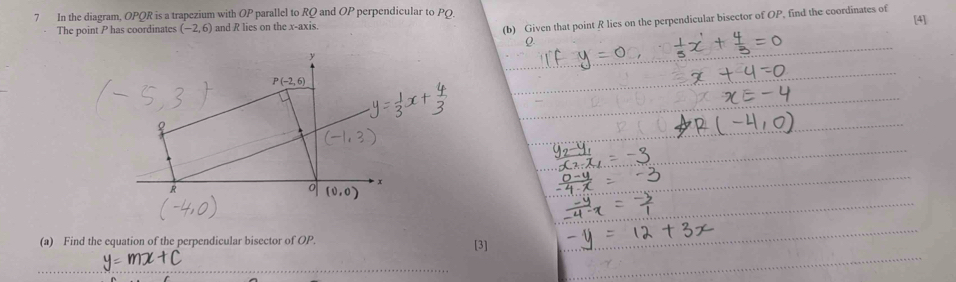 7 In the diagram, OPQR is a trapezium with OP parallel to RQ and OP perpendicular to PQ.
The point P has coordinates (−2, 6) and R lies on the x-axis.
y
P (−2, 6)
(-5,3)
y = 1/3 x + 4/3
Q
(-1,3)
R
O
(0,0)
x
(-4,0)
(a) Find the equation of the perpendicular bisector of OP.
[3]
y = mx + C
(b) Given that point R lies on the perpendicular bisector of OP, find the coordinates of
Q.
[4]
If y = 0, 1/3 x + 4/3 = 0
x + 4 = 0
x = -4
R (-4,0)
y2-y1/x2-x1 = -3
0-y/-4-x = -3
-y/-4-x = -3/1
-y = 12 + 3x